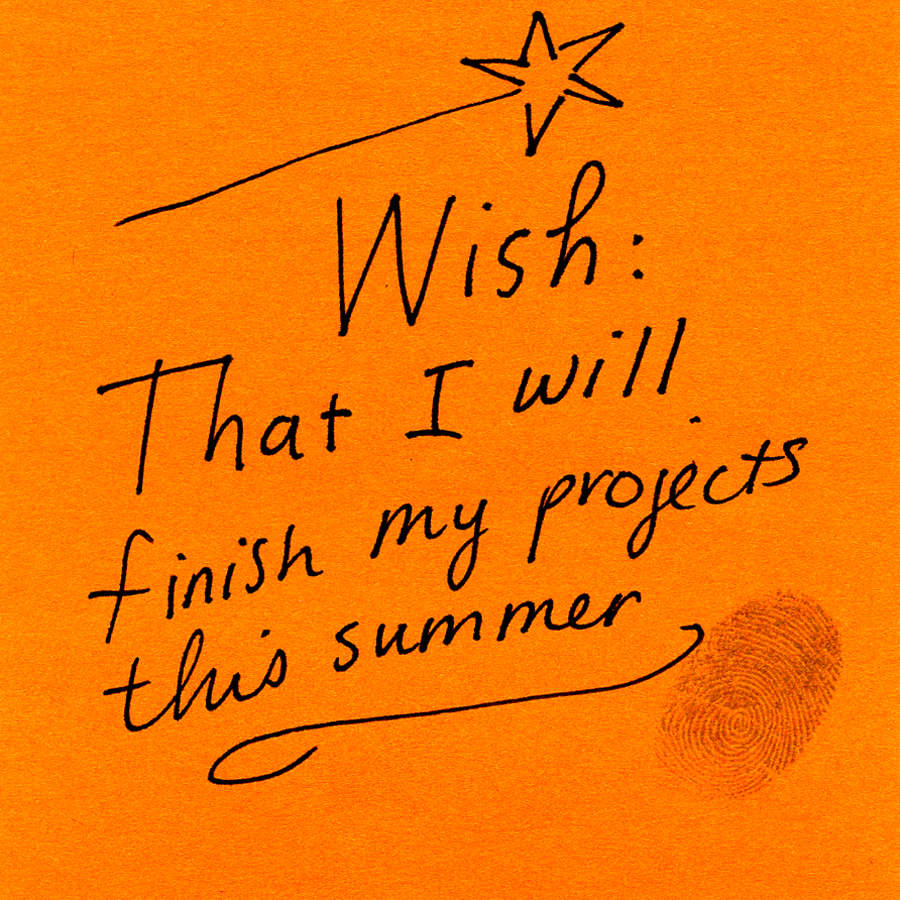 Wish:
That I will
finish my projects
this summer